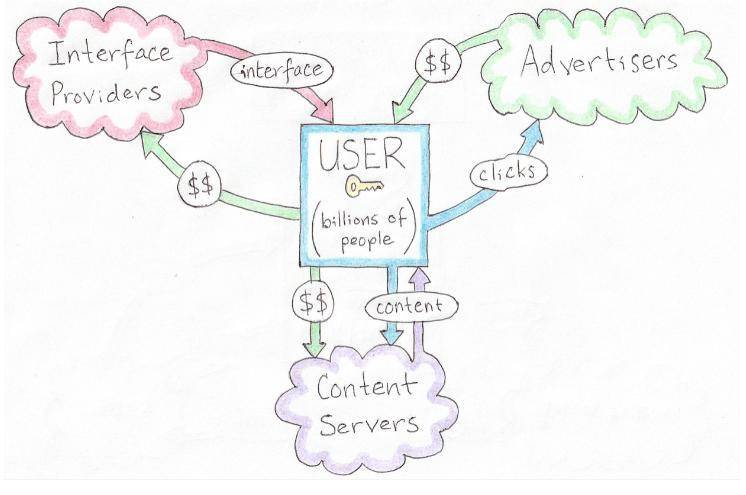 Interface
Providers
interface
$$
Advertisers
USER
(billions of
people)
clicks
$$
$$
content
Content
Servers